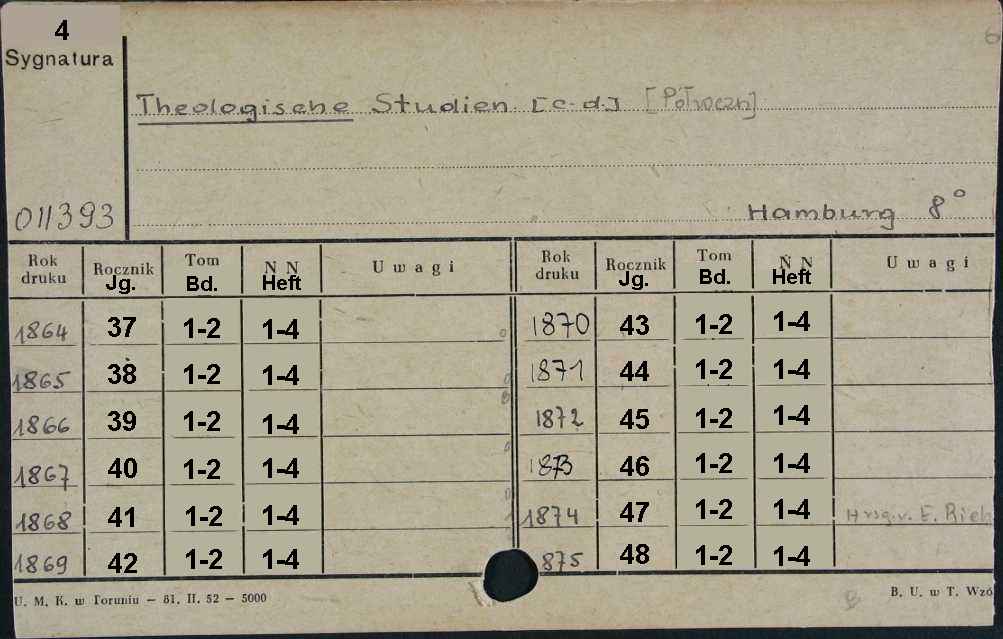 4
Sygnatura
6
Theologische Studien [c.d.] [Półroczn]
011393
Hamburg 8°
Rok druku Rocznik Jg. Tom Bd. N N Heft Uwagi Rok druku Rocznik Jg. Tom Bd. N N Heft Uwagi
1864 37 1-2 1-4 1870 43 1-2 1-4
1865 38 1-2 1-4 1871 44 1-2 1-4
1866 39 1-2 1-4 1872 45 1-2 1-4
1867 40 1-2 1-4 1873 46 1-2 1-4
1868 41 1-2 1-4 1874 47 1-2 1-4 Hrsg. v. E. Rieh
1869 42 1-2 1-4 875 48 1-2 1-4
U. M. K. w Toruniu – 81. II. 52 – 5000 B. U. w T. Wzó